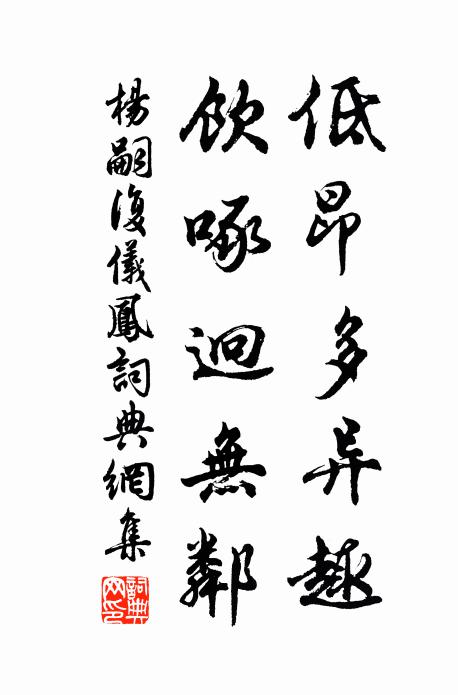 低昂多异趣
飲啄迥無鄰
楊嗣復儀鳳詞典網集
詞典網印